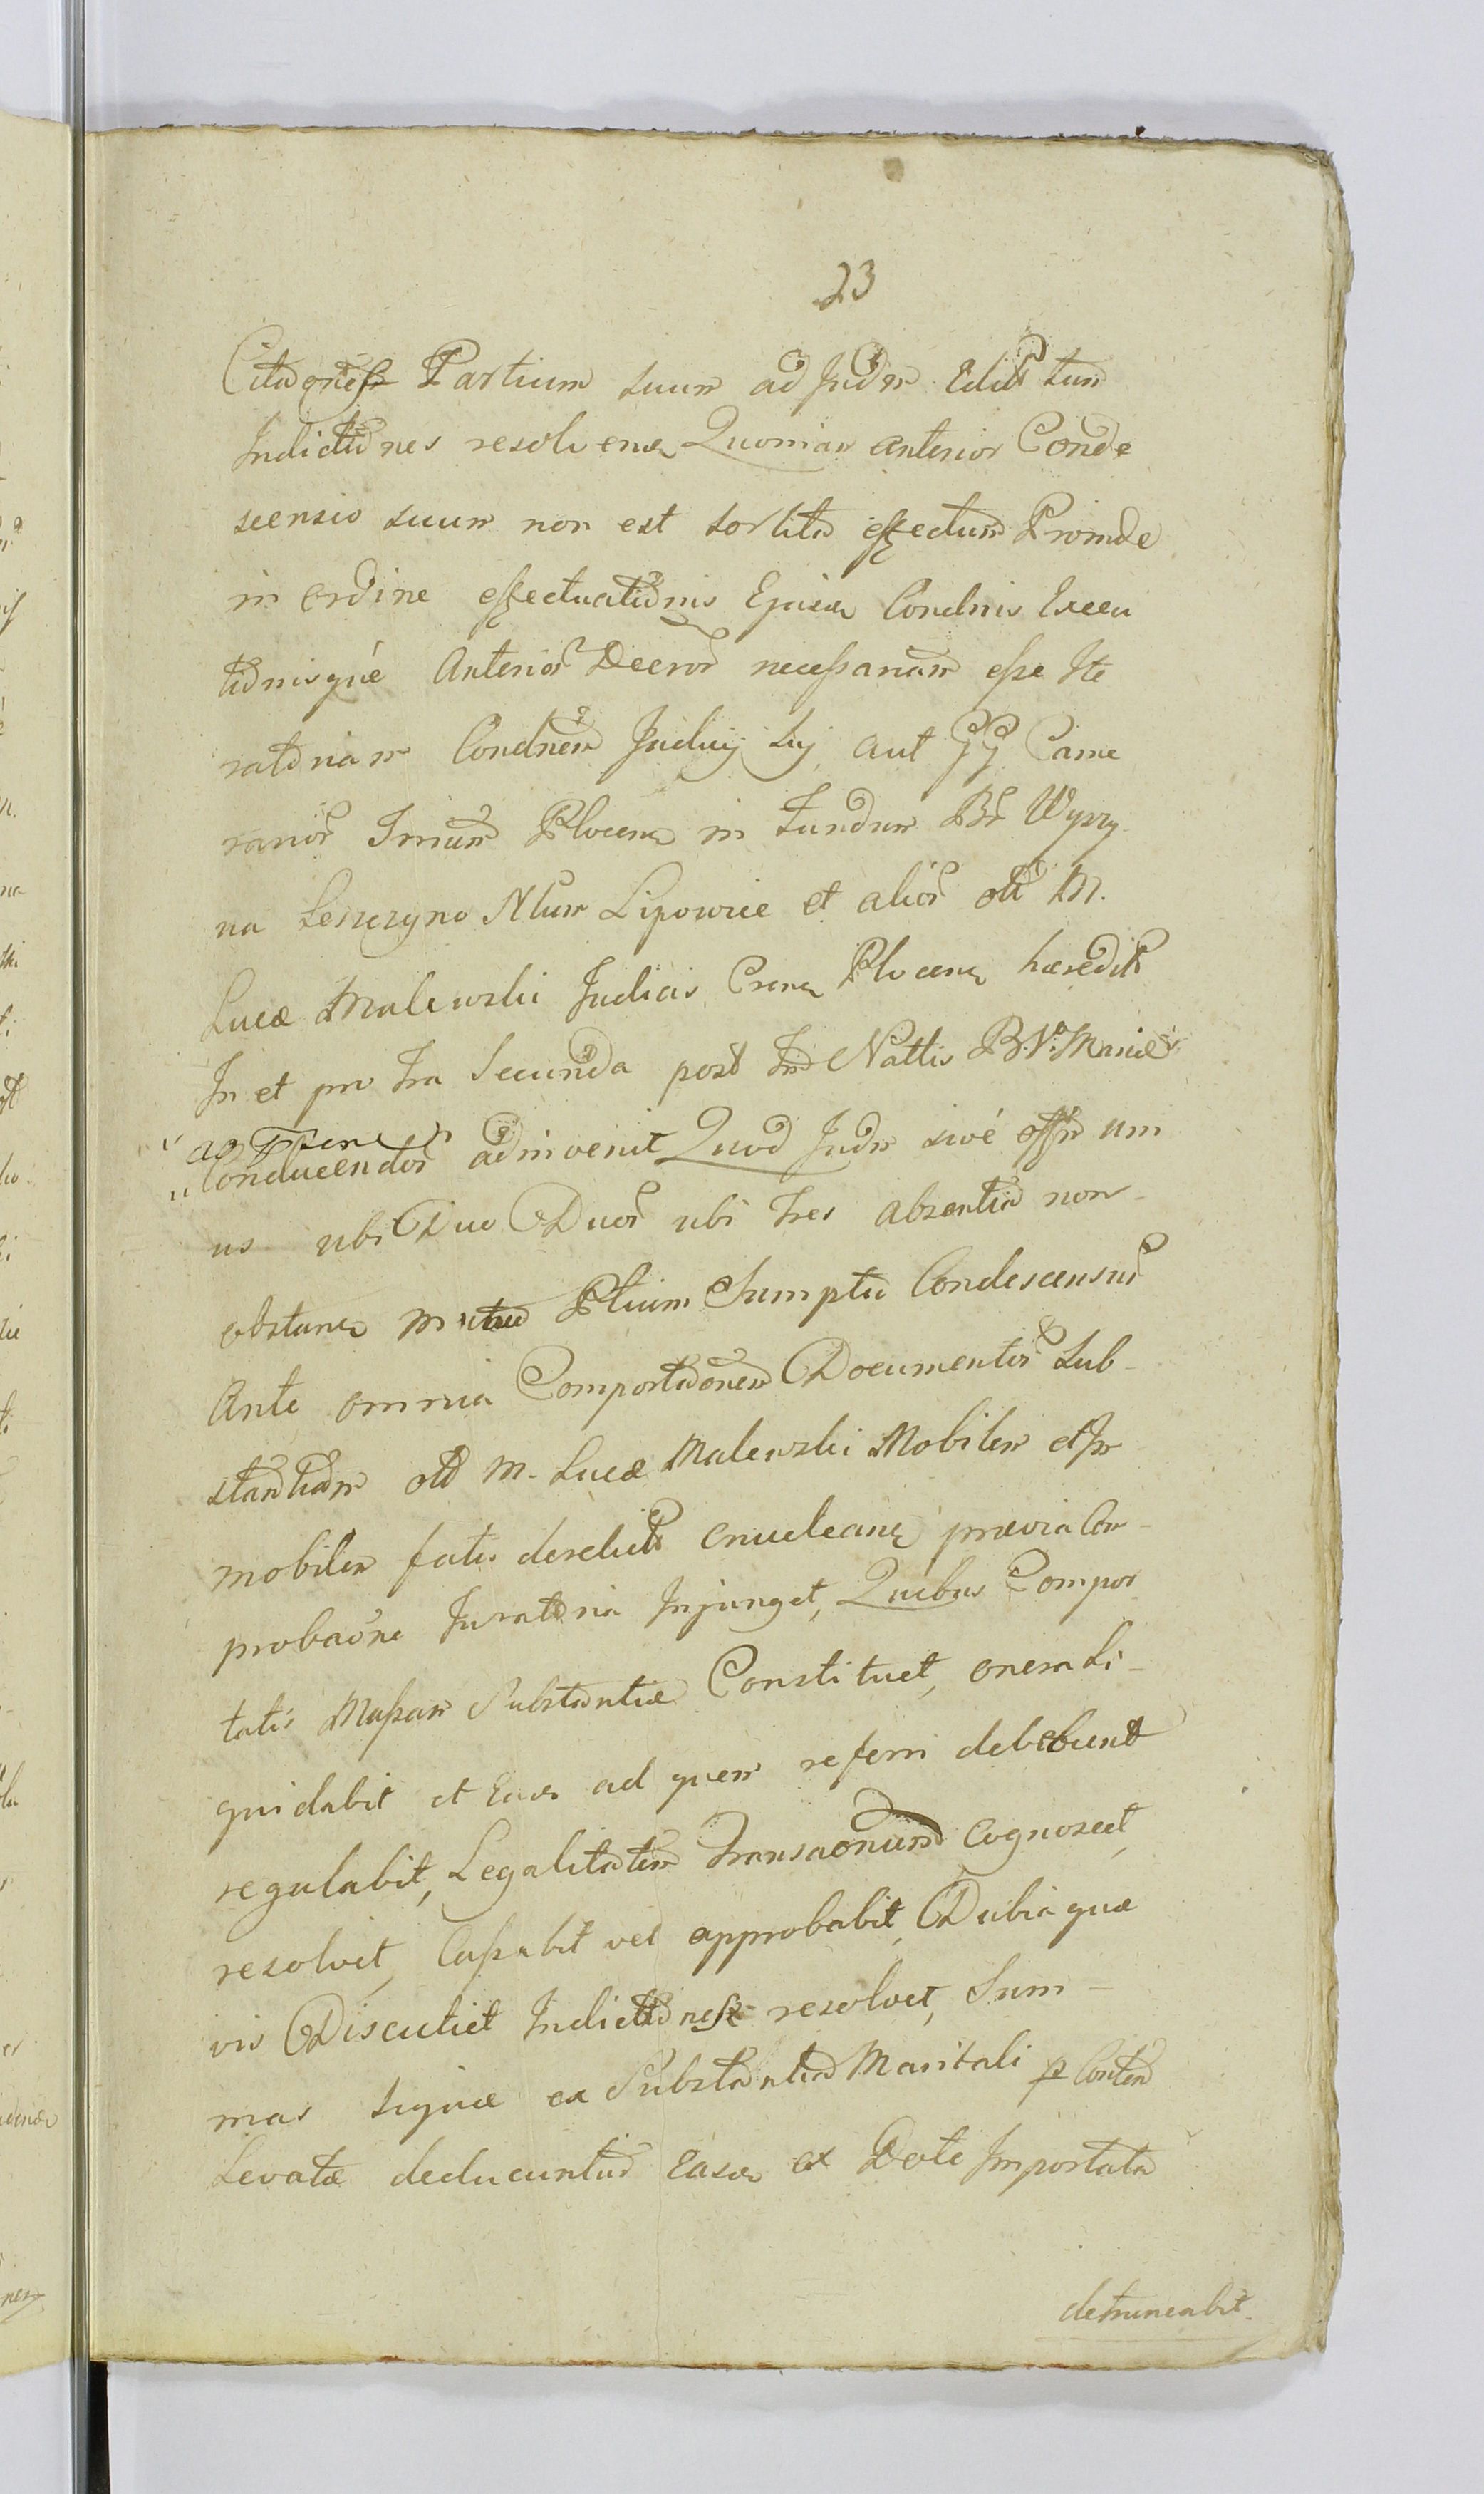 23
Citaõnesq Partium suum ad Judm Edit tum
Indictiones resolven Quoniam anterior Conde
scensio suum non est sortita effectum Proinde
in ordine effectuationis Ejusm Condnis Execu
tionisque Anterior Decror necessariam esse Ite
ratoriam Condnem Judicij sui aut GG Came
rarior Trium Plocen in Fundum Br Wypy
na Leszczyno Ntum Lipowiec et alior oli M.
Lucæ Malewski Judicis Crens Plocen hæredit
In et pro Fra Secunda post Fm Nattis B.V. Mariæ
Conducendor adinvenit Quod Judm sivé offm un
us ubi Duo Duor ubi tres absentia non
obstan Ptium Sumptu Condescensur
Ante omnia Comportaõnem Documentor Sub
stantiam oli M. Lucæ Malewski Mobilem et Im
mobilem fatis derelict enuclean prævia Com
probaõne Juratoria Injunget, Quibus Compor
tatis Massam Substantiæ Constituet, onera Li
quidabit et Eaq ad quem referri debebunt
regulabit, Legalitatem Transaõnum Cognoscet,
resolvet, Cassabit vel approbabit, Dubia quæ
vis Discutiet Indictionesq resolvet, Sum
mas siquæ ex Substantia Maritali p Conten
Levatæ deducuntur Easq ex Dote Importata
detruncabit